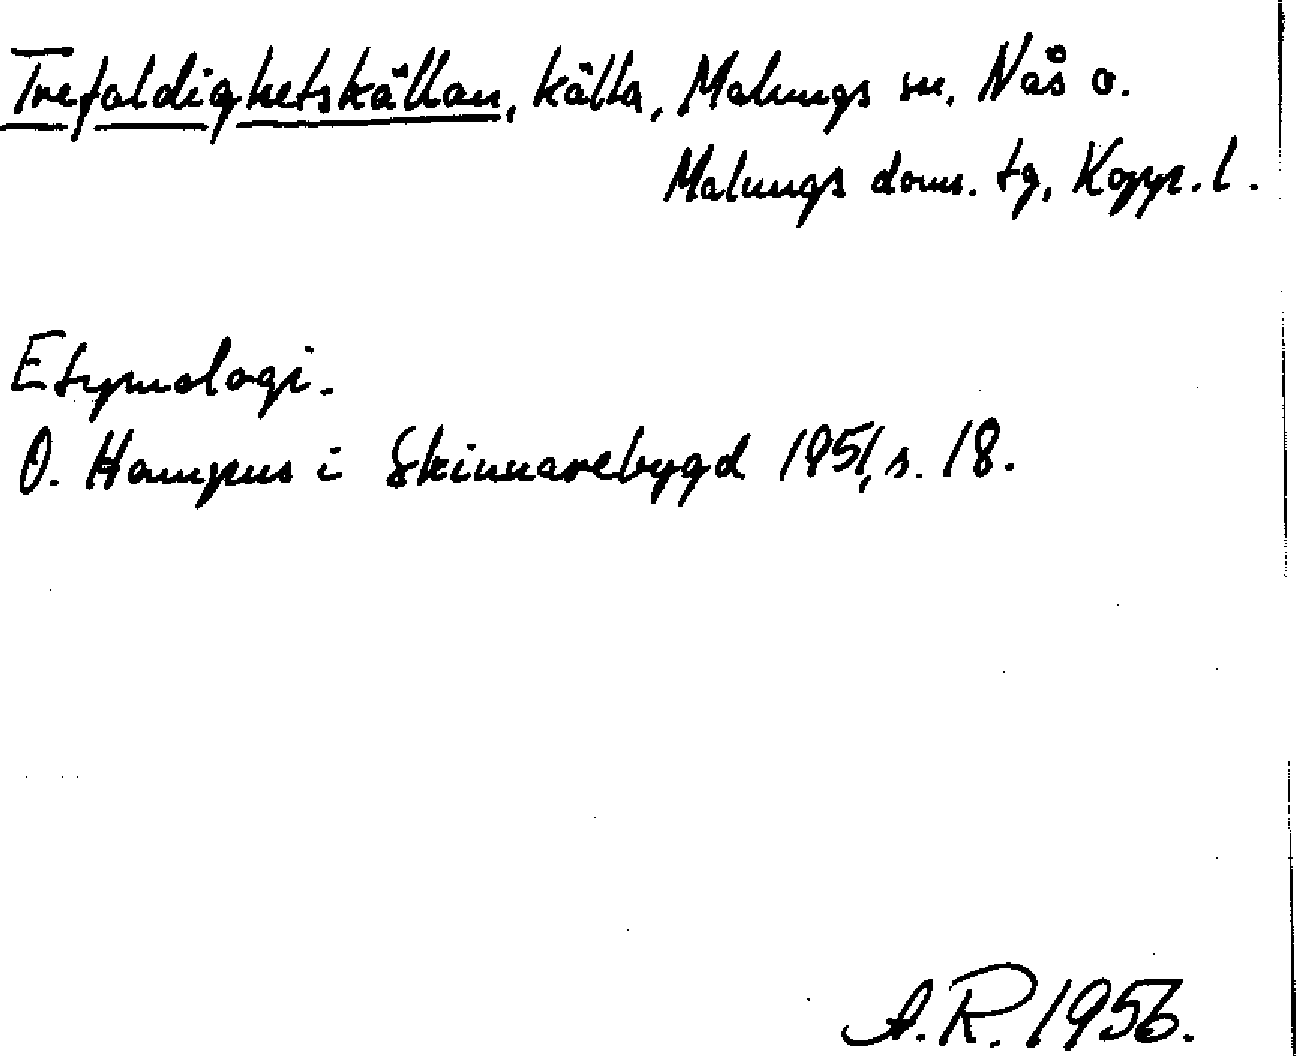 Trefaldighetskällan, källa, Malungs sn, Nås o.
Malungs doms. tg, Kopp. l.
Etymologi.
O. Hampus i Skinnarebygd 1951, s. 18.
A.R. 1956.